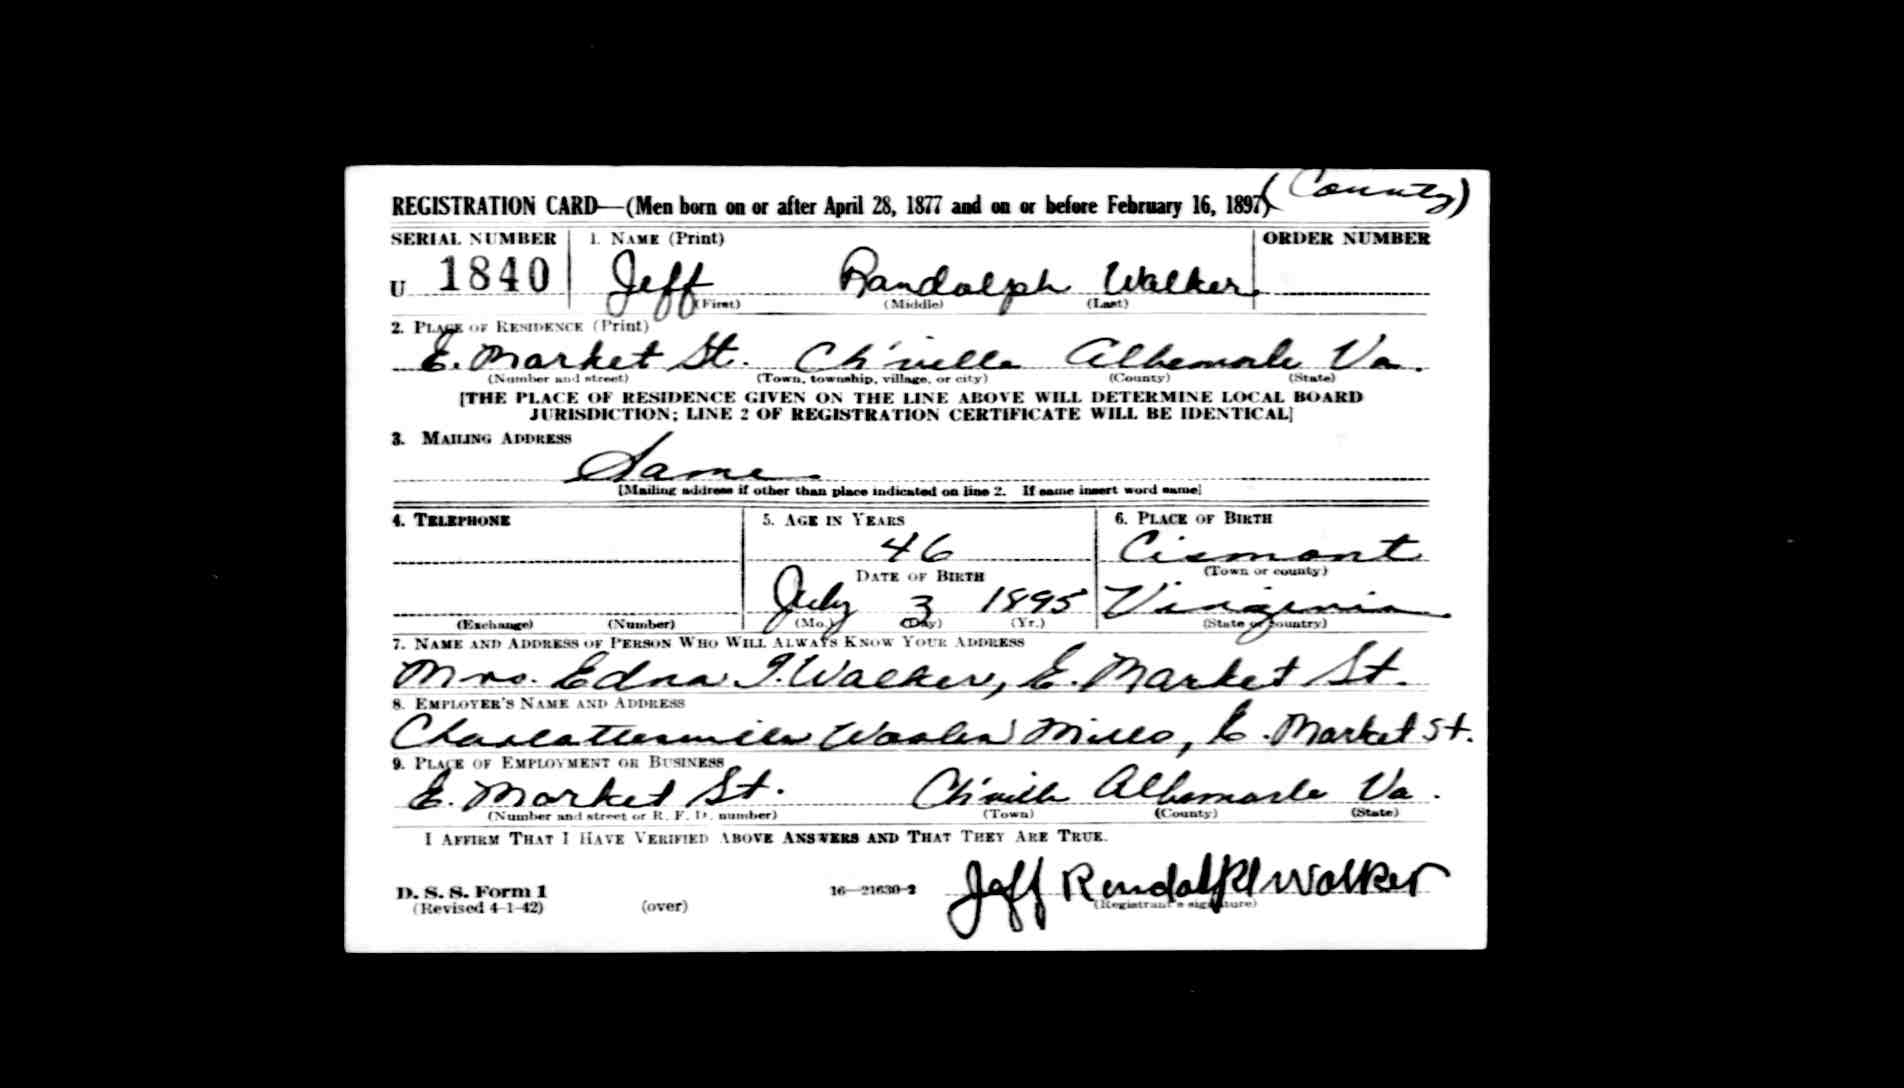 (County)
REGISTRATION CARD—(Men born on or after April 28, 1877 and on or before February 16, 1897)
SERIAL NUMBER 1. NAME (Print) ORDER NUMBER
U 1840 Jeff Randolph Walker
(First) (Middle) (Last)
2. PLACE OF RESIDENCE (Print)
E. Market St. Ch'ville Albemarle Va.
(Number and street) (Town, township, village, or city) (County) (State)
[THE PLACE OF RESIDENCE GIVEN ON THE LINE ABOVE WILL DETERMINE LOCAL BOARD
JURISDICTION; LINE 2 OF REGISTRATION CERTIFICATE WILL BE IDENTICAL]
3. MAILING ADDRESS
Same
[Mailing address if other than place indicated on line 2. If same insert word same]
4. TELEPHONE 5. AGE IN YEARS 6. PLACE OF BIRTH
46 Cismont
DATE OF BIRTH (Town or county)
July 3 1895 Virginia
(Exchange) (Number) (Mo.) (Day) (Yr.) (State or country)
7. NAME AND ADDRESS OF PERSON WHO WILL ALWAYS KNOW YOUR ADDRESS
Mrs. Edna I. Walker, E. Market St.
8. EMPLOYER'S NAME AND ADDRESS
Charlottesville Woolen Mills, E. Market St.
9. PLACE OF EMPLOYMENT OR BUSINESS
E. Market St. Ch'ville Albemarle Va.
(Number and street or R. F. D. number) (Town) (County) (State)
I AFFIRM THAT I HAVE VERIFIED ABOVE ANSWERS AND THAT THEY ARE TRUE.
D. S. S. Form 1 16—21630-2 Jeff Randolph Walker
(Revised 4-1-42) (over) (Registrant's signature)